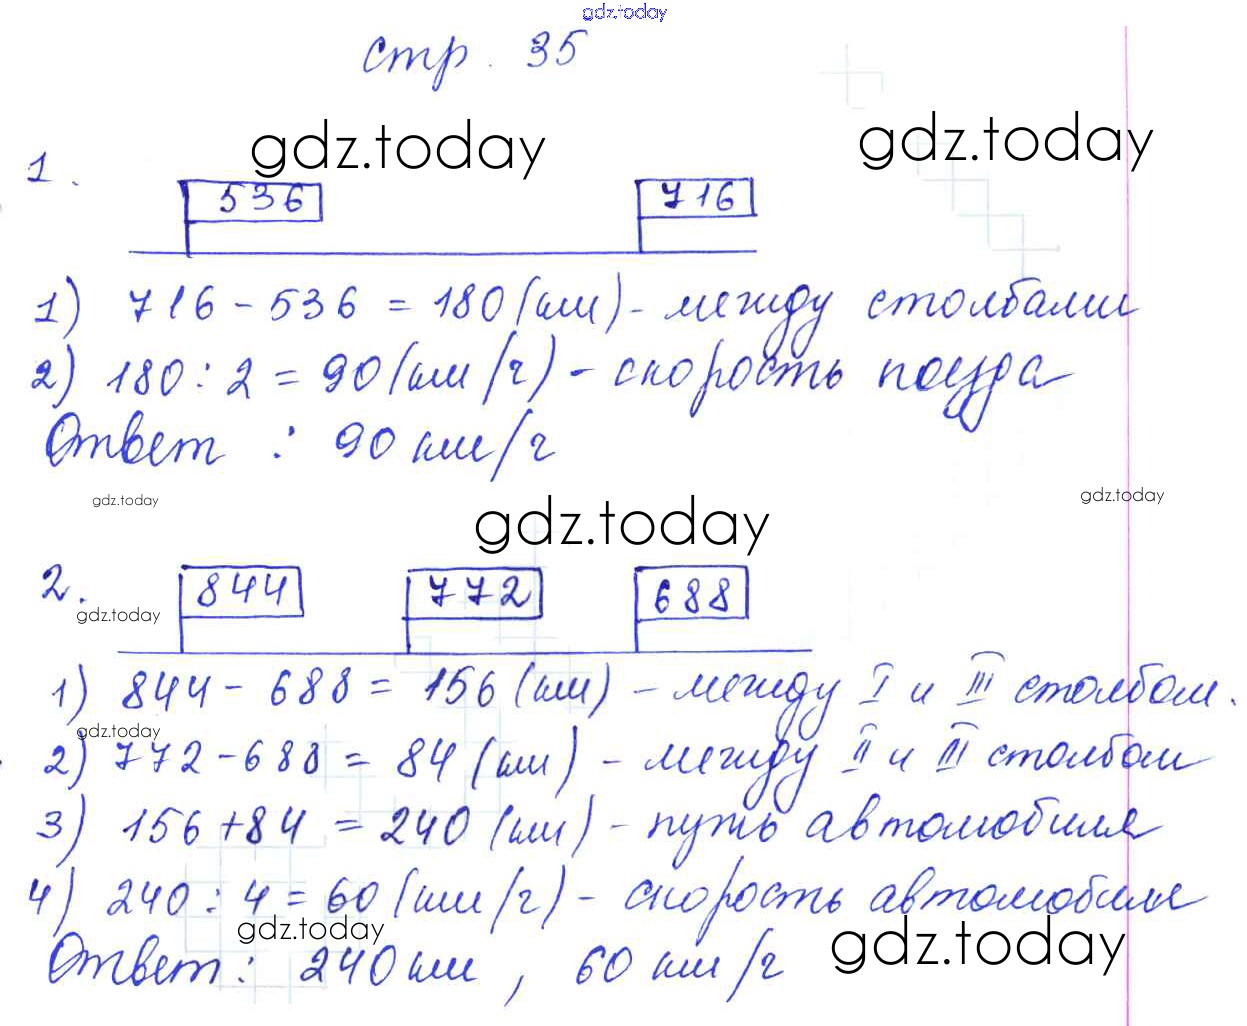 gdz.today
стр. 35
gdz.today gdz.today
1.
536 716
1) 716 - 536 = 180 (км) - между столбами
2) 180 : 2 = 90 (км/г) - скорость поезда
Ответ : 90 км/г
gdz.today gdz.today
gdz.today
2. 844 772 688
gdz.today
1) 844 - 688 = 156 (км) - между I и III столбом.
gdz.today
2) 772 - 688 = 84 (км) - между II и III столбом
3) 156 + 84 = 240 (км) - путь автомобиля
4) 240 : 4 = 60 (км/г) - скорость автомобиля
gdz.today gdz.today
Ответ : 240 км , 60 км/г